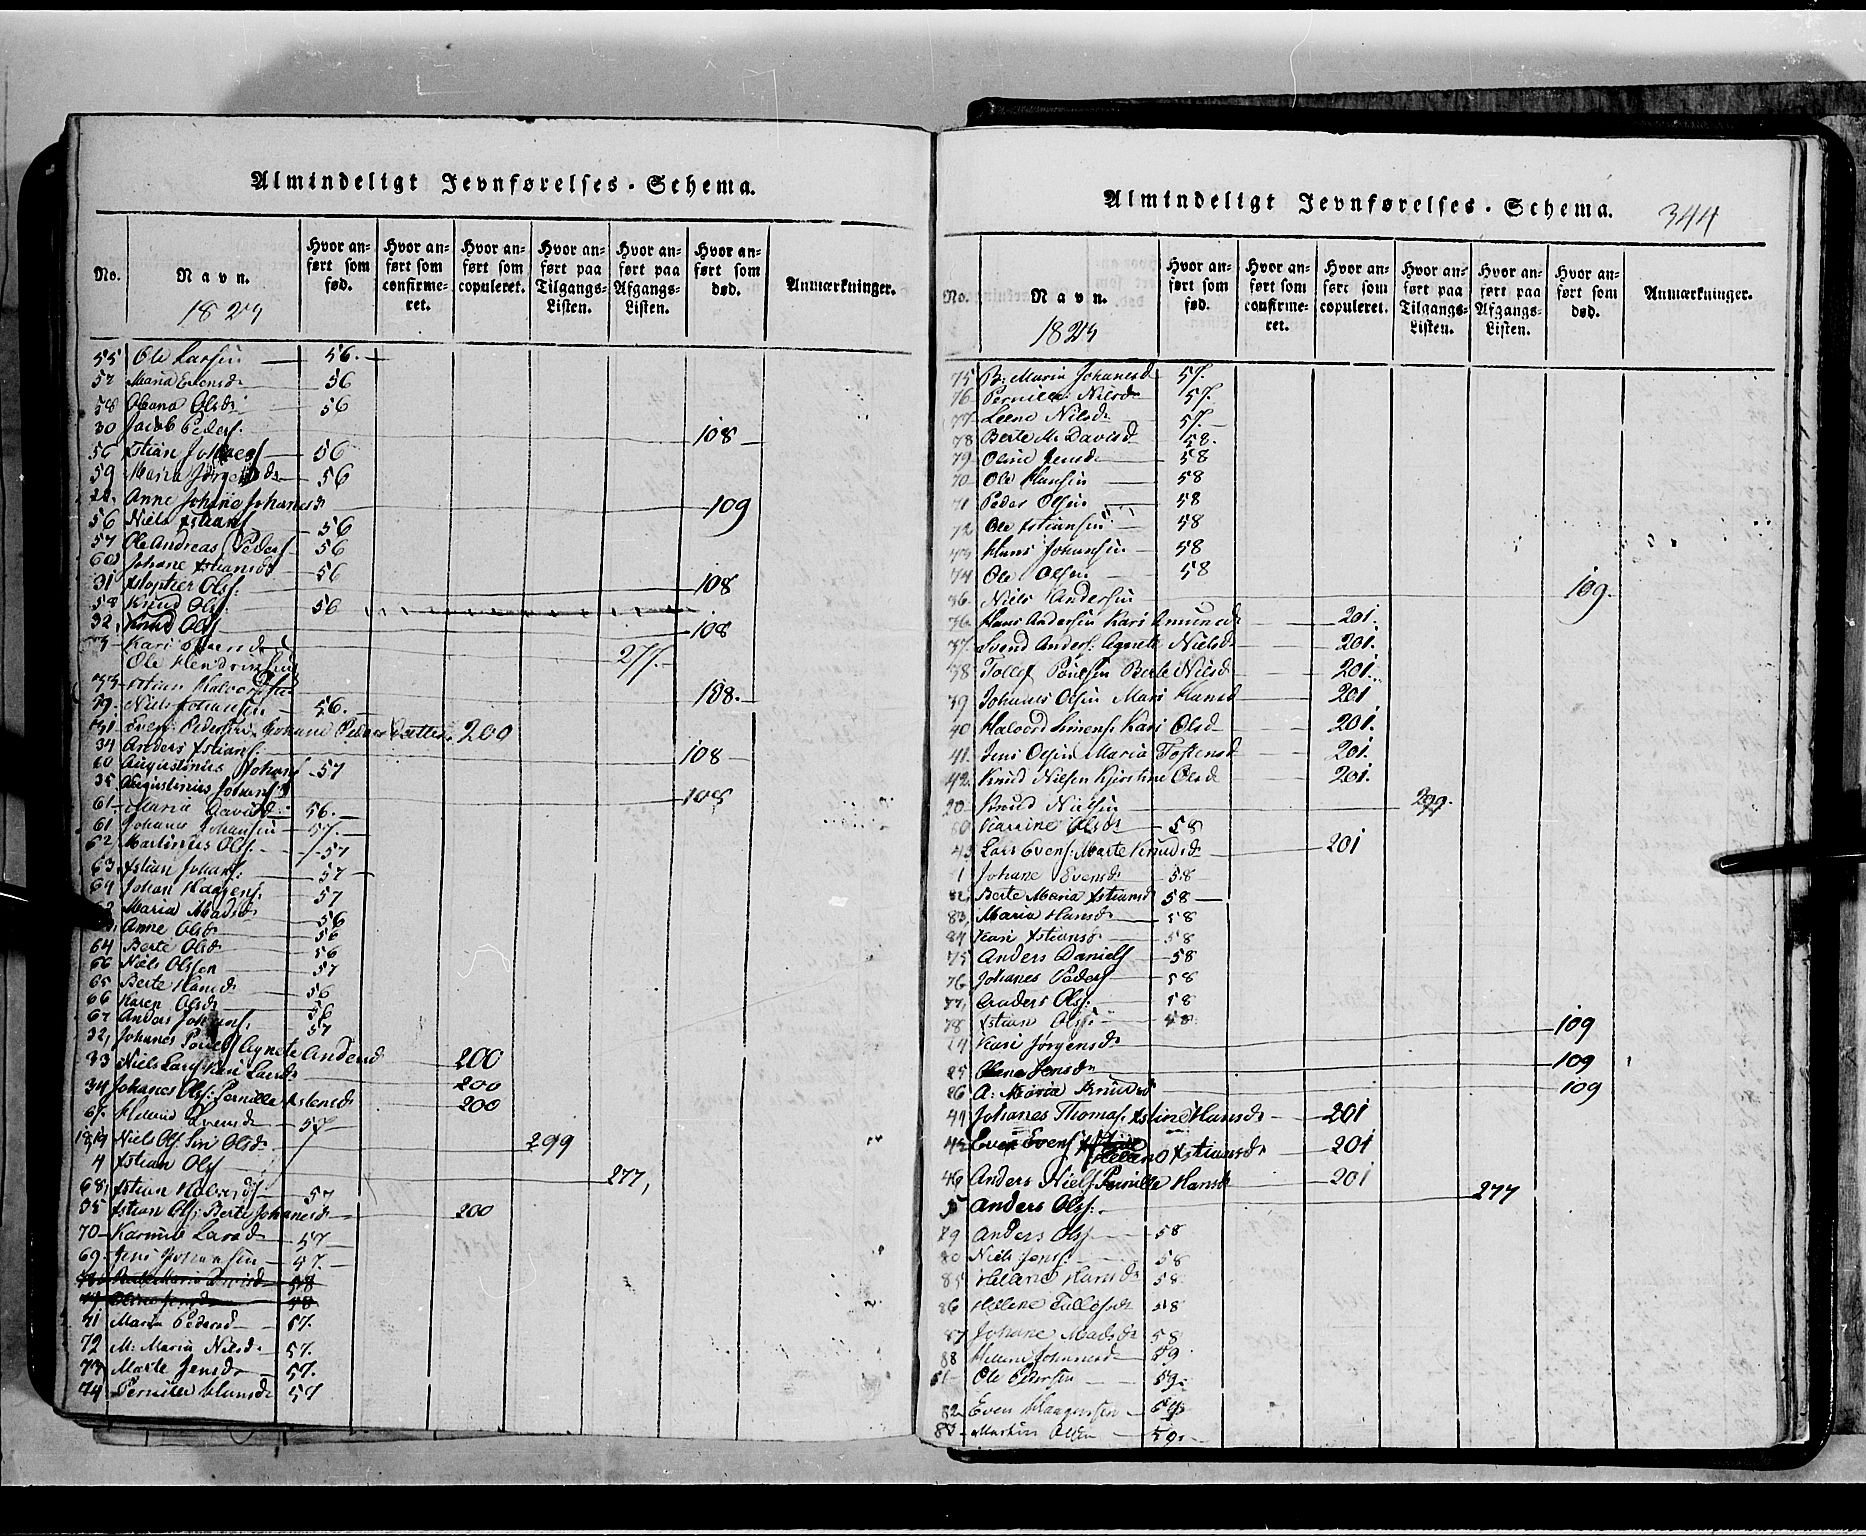 Almindeligt Jevnførelses-Schema.
No. Navn. Hvor anført som fød. Hvor anført som confirmeret. Hvor anført som copuleret. Hvor anført paa Tilgangs-Listen. Hvor anført paa Afgangs-Listen. Hvor anført som død. Anmærkninger.
55 Ole Larsen 56.
57 Maria 56
58 Oleana Olsd 56
30 Jacob Peders. 108
56 56
59 Maria 56
Anne Johane Johanesd 109
56 Niels Xstians 56
57 Ole Andreas Peders 56
60 Johane Xstiansd 56
31 Xstopher Ols. 108
58 Knud Ols. 56
32, Knud Ols 108
Kari
Ole 277.
Xstian 108.
Niels Johansen 56.
31. Even Pedersen Johane 200
34 Anders Xstians. 108
60 Augustinus Johans 57
35 Augustinus Johans 108
61 Maria Davidsd. 56.
61 Johans Johansen 57.
62 Martinus Ols. 57
63. Xstian Johans. 57
64 Johan Haagens. 57
Maria Madsd 56
Anne Olsd 56
64 Berte Olsd 56
66 Niels Olssen 57
65 Berte Hansd 56
66 Karen Olsd 56
67 Anders Johans. 57
32, Johanes Agnete Andersd 200
33 Niels Lars Kari Larsd 200
34 Johanes Ols. Pernille 200
67. 57
Niels Ols. Siri Olsd. 299
4 Xstian Ols 277,
68, Xstian 57
35 Xstian Ols. Berte Johanesd 200
70 Larsd 57
69. Jens Johansen 57.
58
58
71 Maria Pedersd 57.
72 M. Maria Nilsd. 57.
73 Marte Jensd 57.
74 Hansd 57
Almindeligt Jevnførelses-Schema. 344
No. Navn. Hvor anført som fød. Hvor anført som confirmeret. Hvor anført som copuleret. Hvor anført paa Tilgangs-Listen. Hvor anført paa Afgangs-Listen. Hvor anført som død. Anmærkninger.
75 B. Maria Johanesd 57.
76 Pernille Nilsd 57.
77 Leene Nilsd 57.
78 Berte M. Davidsd 58.
79 Oline Jensd 58
70 Ole Hansen 58
71 Peder Olsen 58
72 Ole Xstiansen 58
73 Hans Johansen 58
74 Ole Olsen 58
36. Niels Andersen 109.
36. Hans Andersen Kari Amundsd 201.
37. Svend Anders. Agnete Nielsd 201.
38 Tollef Poulsen Berte Nilsd 201.
39 Johanes Olsen Mari Hansd 201
40 Halvord Simens. Kari Olsd 201.
41. Jens Olsen Maria Tostensd 201.
42. Knud Nilsen Kjirstine Olsd 201.
20 Knud Nielsen 299.
80 Karine Olsd 58
43 Lars Evens. Marte Knudsd 201
1 Johane Evensd 58
82. Berte Maria Xstiansd 58
83. Maria Hansd 58
84 Kari Xstiansd 58
75 Anders Daniels 58
76 Johanes Peders 58
77, Anders Ols. 58
78 Xstian Olss 58.
24 Kari Jørgensd 109
25 Olene Jensd 109
26 A. Maria Knudsd 109
44 Johanes Thomas. Xstine Hansd 201
45 Even Evens Xstiansd 201
46 Anders Niels Pernille Hansd 201
5 Anders Ols. 277
79 Anders Ols 58
80 Niels Jens. 58
85 Helene Hansd 58.
86 Helene Tollefsd 58
87 Johane Madsd 58
88 Helene Johannesd 59
81 Ole Pedersen 59.
82 Even Haagensen 59.
83 Martin Olsen 59.